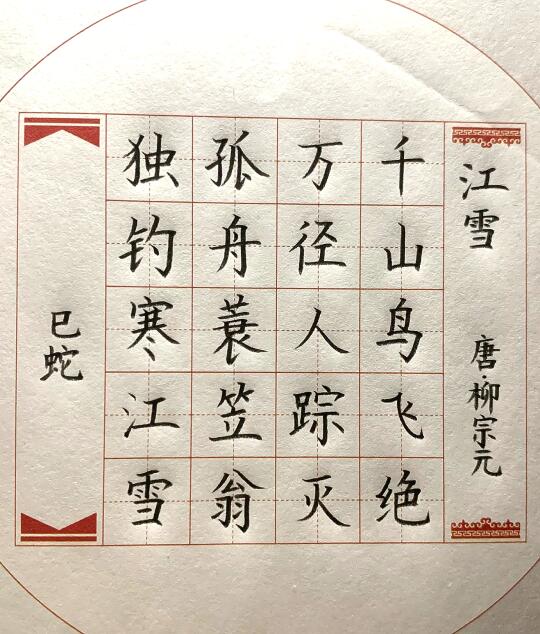 江雪
唐·柳宗元
千山鸟飞绝
万径人踪灭
孤舟蓑笠翁
独钓寒江雪
巳蛇